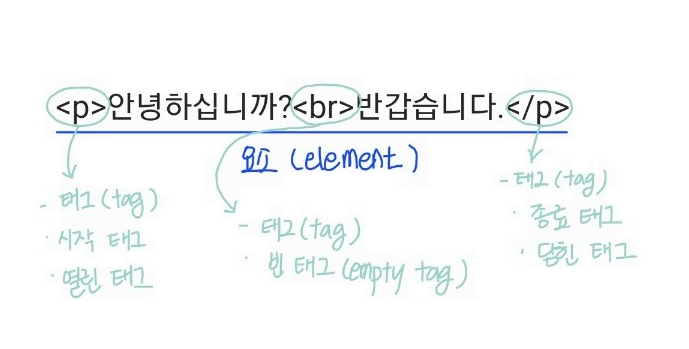 <p>안녕하십니까?<br>반갑습니다.</p>
요소 (element)
- 태그 (tag)
· 시작 태그
· 열린 태그
- 태그 (tag)
· 빈 태그 (empty tag)
- 태그 (tag)
· 종료 태그
· 닫힌 태그